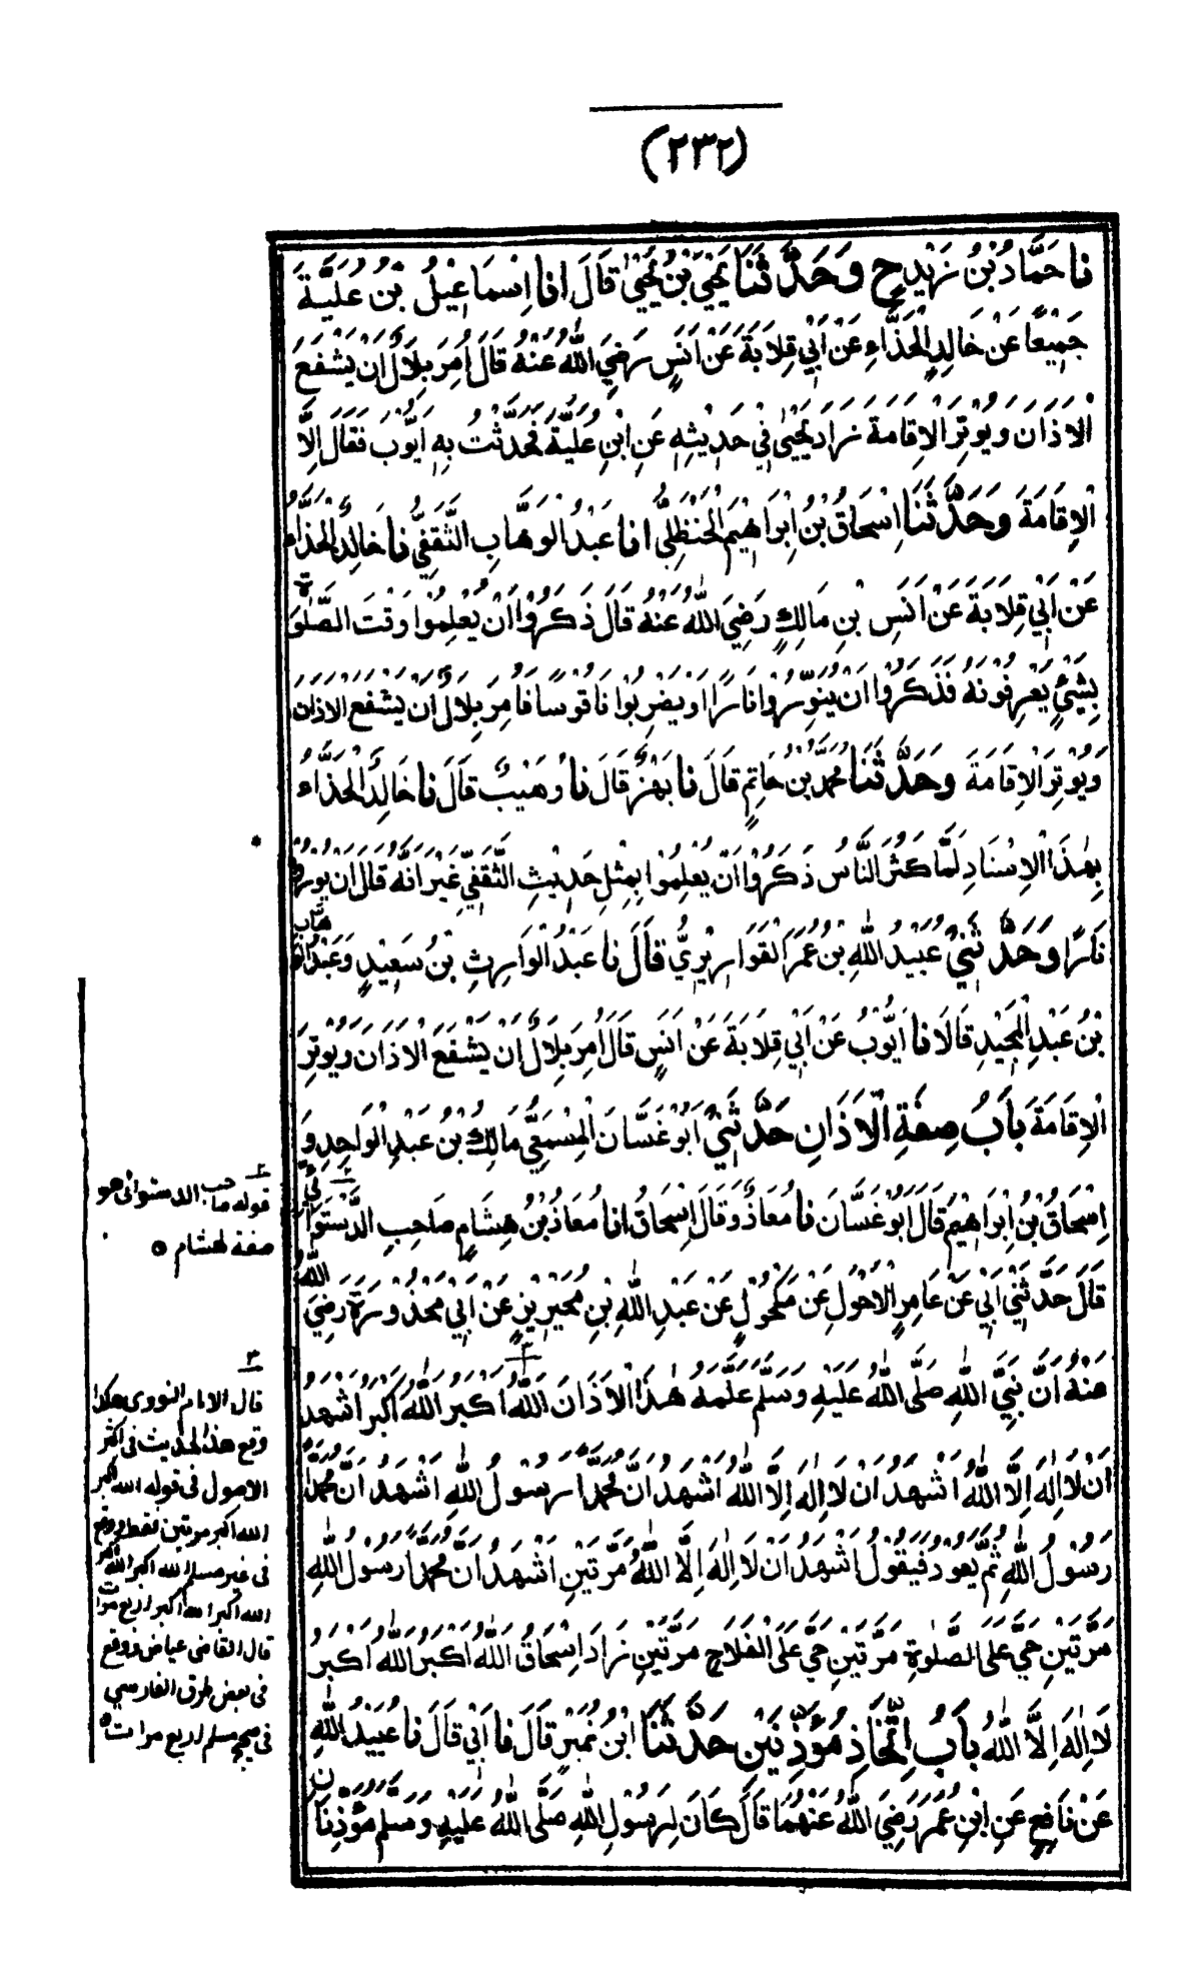 (٢٣٢)
نا حَمَّادُ بْنُ زَيْدٍ ح وَحَدَّثَنَا يَحْيَى بْنُ يَحْيٰى قَالَ انا اِسْمَاعِيْلُ بْنُ عُلَيَّةَ
جَمِيْعًا عَنْ خَالِدٍ الْحَذَّاءِ عَنْ اَبِيْ قِلَابَةَ عَنْ اَنَسٍ رَضِيَ اللّٰهُ عَنْهُ قَالَ اُمِرَ بِلَالٌ اَنْ يَشْفَعَ
الْاَذَانَ وَيُوْتِرَ الْاِقَامَةَ زَادَ يَحْيٰى فِيْ حَدِيْثِهٖ عَنِ ابْنِ عُلَيَّةَ فَحَدَّثْتُ بِهٖ اَيُّوْبَ فَقَالَ اِلَّا
الْاِقَامَةَ وَحَدَّثَنَا اِسْحَاقُ بْنُ اِبْرَاهِيْمَ الْحَنْظَلِيُّ انا عَبْدُ الْوَهَّابِ الثَّقَفِيُّ نا خَالِدٌ الْحَذَّاءُ
عَنْ اَبِيْ قِلَابَةَ عَنْ اَنَسِ بْنِ مَالِكٍ رَضِيَ اللّٰهُ عَنْهُ قَالَ ذَكَرُوْا اَنْ يُعْلِمُوْا وَقْتَ الصَّلٰوةِ
بِشَيْئٍ يَعْرِفُوْنَهٗ فَذَكَرُوْا اَنْ يُنَوِّرُوْا نَارًا اَوْ يَضْرِبُوْا نَاقُوْسًا فَاُمِرَ بِلَالٌ اَنْ يَشْفَعَ الْاَذَانَ
وَيُوْتِرَ الْاِقَامَةَ وَحَدَّثَنَا مُحَمَّدُ بْنُ حَاتِمٍ قَالَ نا بَهْزٌ قَالَ نا وُهَيْبٌ قَالَ نا خَالِدٌ الْحَذَّاءُ
بِهٰذَا الْاِسْنَادِ لَمَّا كَثُرَ النَّاسُ ذَكَرُوْا اَنْ يُعْلِمُوْا بِمِثْلِ حَدِيْثِ الثَّقَفِيِّ غَيْرَ اَنَّهٗ قَالَ اَنْ يُوْرُوْا
نَارًا وَحَدَّثَنِيْ عُبَيْدُ اللّٰهِ بْنُ عُمَرَ الْقَوَارِيْرِيُّ قَالَ نا عَبْدُ الْوَارِثِ بْنُ سَعِيْدٍ وَعَبْدُ الْوَهَّابِ
بْنُ عَبْدِ الْمَجِيْدِ قَالَا نا اَيُّوْبُ عَنْ اَبِيْ قِلَابَةَ عَنْ اَنَسٍ قَالَ اُمِرَ بِلَالٌ اَنْ يَشْفَعَ الْاَذَانَ وَيُوْتِرَ
الْاِقَامَةَ بَابُ صِفَةِ الْاَذَانِ حَدَّثَنِيْ اَبُوْ غَسَّانَ الْمِسْمَعِيُّ مَالِكُ بْنُ عَبْدِ الْوَاحِدِ وَ
اِسْحَاقُ بْنُ اِبْرَاهِيْمَ قَالَ اَبُوْ غَسَّانَ نا مُعَاذٌ وَقَالَ اِسْحَاقُ انا مُعَاذُ بْنُ هِشَامٍ صَاحِبِ الدَّسْتَوَائِيِّ ٢
قَالَ حَدَّثَنِيْ اَبِيْ عَنْ عَامِرٍ الْاَحْوَلِ عَنْ مَكْحُوْلٍ عَنْ عَبْدِ اللّٰهِ بْنِ مُحَيْرِيْزٍ عَنْ اَبِيْ مَحْذُوْرَةَ رَضِيَ اللّٰهُ
عَنْهُ اَنَّ نَبِيَّ اللّٰهِ صَلَّى اللّٰهُ عَلَيْهِ وَسَلَّمَ عَلَّمَهٗ هٰذَا الْاَذَانَ ٣ اَللّٰهُ اَكْبَرُ اَللّٰهُ اَكْبَرُ اَشْهَدُ
اَنْ لَا اِلٰهَ اِلَّا اللّٰهُ اَشْهَدُ اَنْ لَا اِلٰهَ اِلَّا اللّٰهُ اَشْهَدُ اَنَّ مُحَمَّدًا رَسُوْلُ اللّٰهِ اَشْهَدُ اَنَّ مُحَمَّدًا
رَسُوْلُ اللّٰهِ ثُمَّ يَعُوْدُ فَيَقُوْلُ اَشْهَدُ اَنْ لَا اِلٰهَ اِلَّا اللّٰهُ مَرَّتَيْنِ اَشْهَدُ اَنَّ مُحَمَّدًا رَسُوْلُ اللّٰهِ
مَرَّتَيْنِ حَيَّ عَلَى الصَّلٰوةِ مَرَّتَيْنِ حَيَّ عَلَى الْفَلَاحِ مَرَّتَيْنِ زَادَ اِسْحَاقُ اَللّٰهُ اَكْبَرُ اَللّٰهُ اَكْبَرُ
لَا اِلٰهَ اِلَّا اللّٰهُ بَابُ اتِّخَاذِ مُؤَذِّنَيْنِ حَدَّثَنَا ابْنُ نُمَيْرٍ قَالَ نا اَبِيْ قَالَ نا عُبَيْدُ اللّٰهِ
عَنْ نَافِعٍ عَنِ ابْنِ عُمَرَ رَضِيَ اللّٰهُ عَنْهُمَا قَالَ كَانَ لِرَسُوْلِ اللّٰهِ صَلَّى اللّٰهُ عَلَيْهِ وَسَلَّمَ مُؤَذِّنَانِ
٢
قوله صاحب الدستوائى هو
صفة لهشام ٥
٣
قال الامام النووى هكذا
وقع هذا الحديث فى اكثر
الاصول فى قوله الله اكبر
الله اكبر مرتين فقط ووقع
فى غير مسلم الله اكبر الله اكبر
الله اكبر الله اكبر اربع مرات
قال القاضى عياض ووقع
فى بعض طرق الفارسي
فى صحيح مسلم اربع مرات ٥